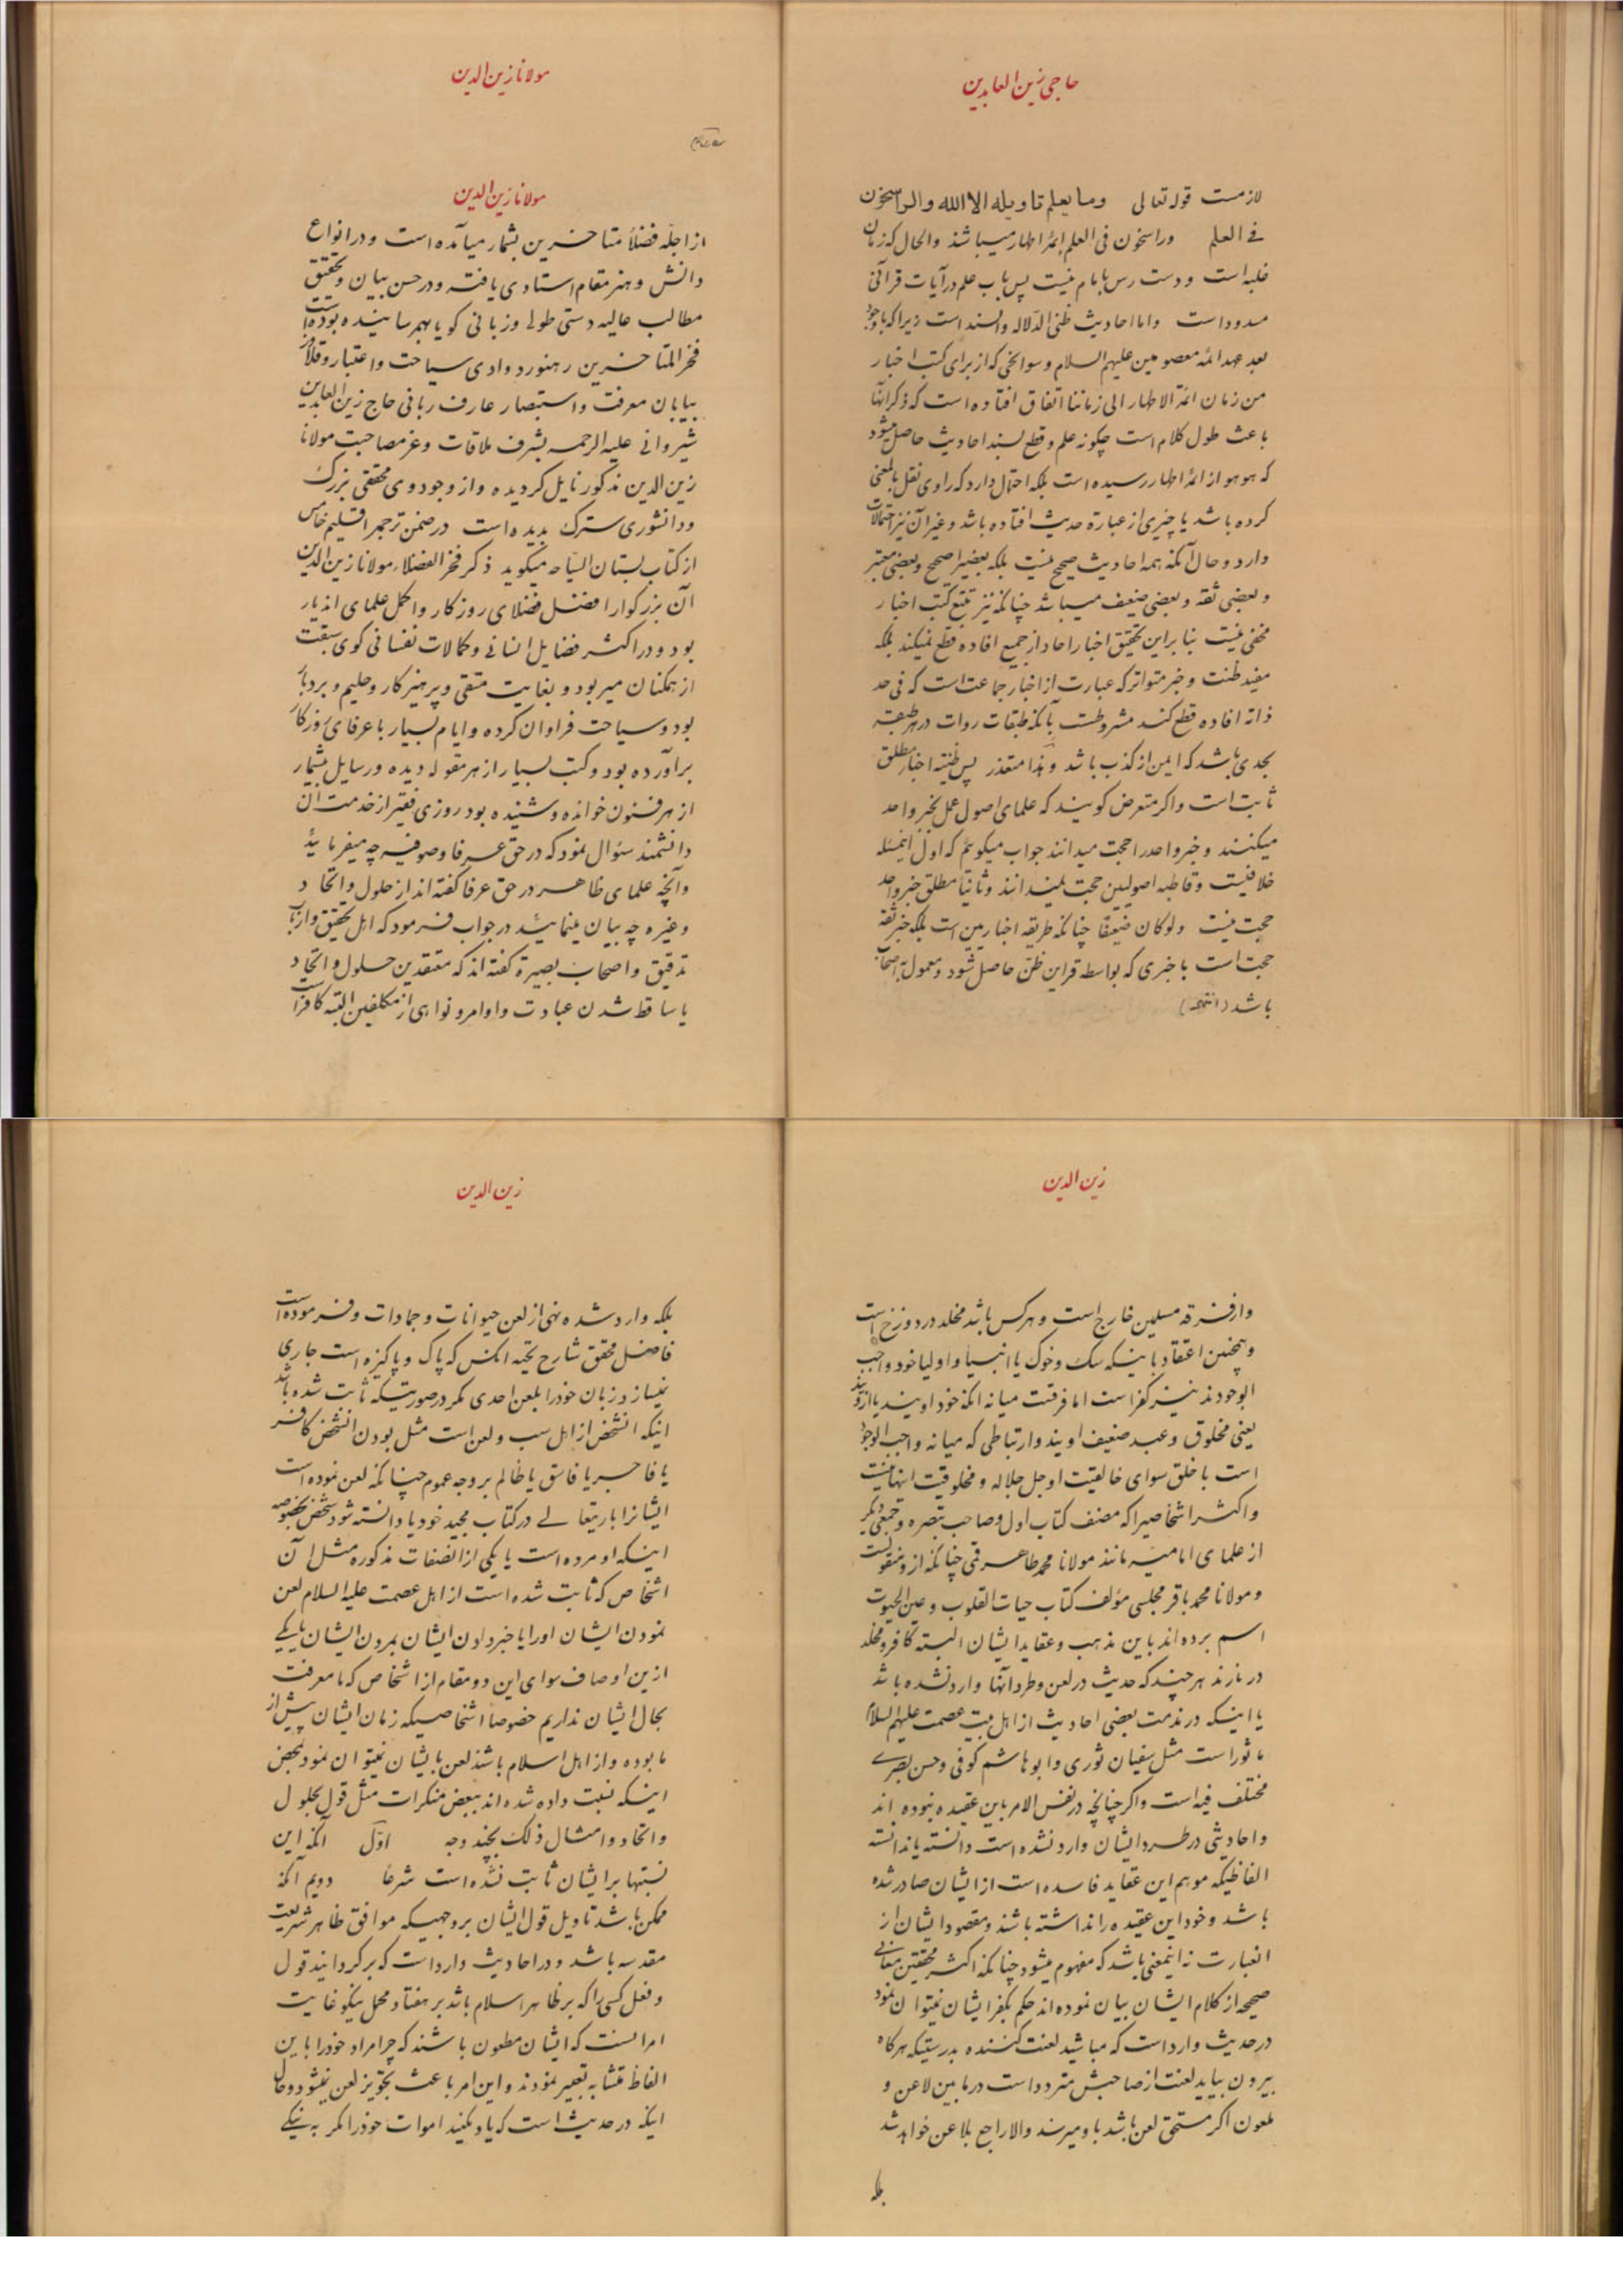 حاجی زین العابدین
لازمست قوله تعالی وما یعلم تاویله الا الله والراسخون
فی العلم وراسخون فی العلم ائمۀ اطهار میباشند والحال که زمان
غلبه است و دست رس بامام نیست پس باب علم در آیات قرآنی
مسدود است واما احادیث ظنی الدلاله والسند است زیرا که باوجود
بعد عهد ائمه معصومین علیهم السلام و سوانحی که از برای کتب اخبار
من زمان ائمة الاطهار الی زماننا اتفاق افتاده است که ذکر آنها
باعث طول کلام است چکونه علم و قطع بسند احادیث حاصل میشود
که هو هو از ائمۀ اطهار رسیده است بلکه احتمال دارد که راوی نقل بالمعنی
کرده باشد یا چیزی از عبارة حدیث افتاده باشد و غیر آن نیز احتمالات
دارد و حال آنکه همه احادیث صحیح نیست بلکه بعضی اصحح و بعضی معتبر
و بعضی ثقه و بعضی ضعیف میباشد چنانکه نیز تتبع کتب اخبار
مخفی نیست بنابراین تحقیق اخبار احاد از جمیع افاده قطع نمیکند بلکه
مفید ظنست و خبر متواتر که عبارت از اخبار جماعت است که فی حد
ذاته افاده قطع کند مشروطست بآنکه طبقات روات در هر طبقه
بحدی باشد که ایمن از کذب باشد و هذا متعذر پس ظنیته اخبار مطلق
ثابت است واکر متعرض کویند که علمای اصول عمل بخبر واحد
میکنند و خبر واحد را حجت میدانند جواب میکویم که اولا اینمسئله
خلافیست و قاطبه اصولیین حجت نمیدانند و ثانیا مطلق خبر واحد
حجت نیست ولو کان ضعیفا چنانکه طریقه اخباریین است بلکه خبر ثقه
حجت است یا خبری که بواسطه قراین ظن حاصل شود و معمول به اصحاب
باشد (انتهی)
مولانا زین الدین
مولانا زین الدین
از اجلّه فضلأ متاخرین بشمار میآمده است و در انواع
دانش و هنر مقام استادی یافته و در حسن بیان و تحقیق
مطالب عالیه دستی طولی و زبانی کویا بهمرسانیده بوده است
فخر المتاخرین رهنورد وادی سیاحت واعتبار و قلاوز
بیابان معرفت واستبصار عارف ربانی حاج زین العابدین
شیروانی علیه الرحمه بشرف ملاقات و عز مصاحبت مولانا
زین الدین مذکور نایل کردیده و از وجود وی محققی بزرک
ودانشوری سترک بدیده است در ضمن ترجمه اقلیم خامس
از کتاب بستان السیاحه میکوید ذکر فخر الفضلاء مولانا زین الدین
آن بزرکوار افضل فضلای روزکار واکمل علمای اندیار
بود و در اکثر فضایل انسانی و کمالات نفسانی کوی سبقت
از همکنان میربود و بغایت متقی و پرهیزکار و حلیم و بردبار
بود و سیاحت فراوان کرده و ایام بسیار با عرفای روزکار
برآورده بود و کتب بسیار از هر مقوله دیده و رسایل بیشمار
از هر فنون خوانده و شنیده بود روزی فقیر از خدمت آن
دانشمند سئوال نمود که در حق عرفا و صوفیه چه میفرمائید
وآنچه علمای ظاهر در حق عرفا کفته اند از حلول و اتحاد
و غیره چه بیان مینمائید در جواب فرمود که اهل تحقیق وارباب
تدقیق واصحاب بصیرة کفته اند که معتقدین حلول و اتحاد
یا ساقط شدن عبادت و اوامر و نواهی از مکلفین البته کافر است
زین الدین
و از فرقه مسلمین خارج است و هرکس باشد مخلد در دوزخ است
و همچنین اعتقاد باینکه سک و خوک یا انبیاء و اولیا خود واجب
الوجودند نیز کفر است اما فرقست میانه آنکه خود اویند یا ازویند
یعنی مخلوق و عبد ضعیف اویند و ارتباطی که میانه واجب الوجود
است با خلق سوای خالقیت او جل جلاله و مخلوقیت اینها نیست
و اکثر اشخاصیرا که مصنف کتاب اول و صاحب تبصره و جمعی دیکر
از علمای امامیه مانند مولانا محمد طاهر قمی چنانکه از و منقولست
و مولانا محمد باقر مجلسی مؤلف کتاب حیات القلوب و عین الحیوت
اسم برده اند باین مذهب و عقاید ایشان البته کافر و مخلد
در نارند هرچند که حدیث در لعن و طرد آنها وارد نشده باشد
یا اینکه در مذمت بعضی احادیث از اهل بیت عصمت علیهم السلام
ماثور است مثل سفیان ثوری و ابو هاشم کوفی و حسن بصری
مختلف فیه است و اکر چنانچه در نفس الامر باین عقیده نبوده اند
و احادیثی در طرد ایشان وارد نشده است دانسته یا ندانسته
الفاظیکه موهم این عقاید فاسده است از ایشان صادر شده
باشد و خود این عقیده را نداشته باشند و مقصود ایشان از
انعبارت نه اینمعنی باشد که مفهوم میشود چنانکه اکثر محققین معانی
صحیحه از کلام ایشان بیان نموده اند حکم بکفر ایشان نمیتوان نمود
در حدیث وارد است که مباشید لعنت کننده بدرستیکه هرکاه
بیرون بیاید لعنت از صاحبش متردد است در ما بین لاعن و
ملعون اکر مستحق لعن باشد باو میرسد و الا راجع بلاعن خواهد شد
بلکه
زین الدین
بلکه وارد شده نهی از لعن حیوانات و جمادات و فرموده است
فاضل محقق شارح نخبه انکس که پاک و پاکیزه است جاری
نمیسازد زبان خود را بلعن احدی مکر در صورتیکه ثابت شده باشد
اینکه انشخص از اهل سب و لعن است مثل بودن انشخص کافر
یا فاجر یا فاسق یا ظالم بر وجه عموم چنانکه لعن نموده است
ایشانرا باریتعالی در کتاب مجید خود یا دانسته شود شخص بخصوصه
اینکه او مرده است با یکی از انصفات مذکوره مثل آن
اشخاص که ثابت شده است از اهل عصمت علیه السلام لعن
نمودن ایشان اورا یا خبر دادن ایشان بمردن ایشان با یکی
ازین اوصاف سوای این دو مقام از اشخاص که ما معرفت
بحال ایشان نداریم خصوصاً اشخاصیکه زمان ایشان پیش از
ما بوده و از اهل اسلام باشند لعن بایشان نمیتوان نمود بمحض
اینکه نسبت داده شده اند ببعض منکرات مثل قول بحلول
و اتحاد و امثال ذلک بچند وجه اوّل آنکه این
نسبتها بر ایشان ثابت نشده است شرعاً دویم آنکه
ممکن باشد تاویل قول ایشان بر وجهیکه موافق ظاهر شریعت
مقدسه باشد و در احادیث وارد است که برکردانید قول
و فعل کسی را که بر ظاهر اسلام باشد بر هفتاد محمل نیکو غایت
امر اینست که ایشان مطعون باشند که چرا مراد خود را باین
الفاظ متشابه تعبیر نمودند و این امر باعث تجویز لعن نمیشود و حال
اینکه در حدیث است که یاد مکنید اموات خود را مکر به نیکی